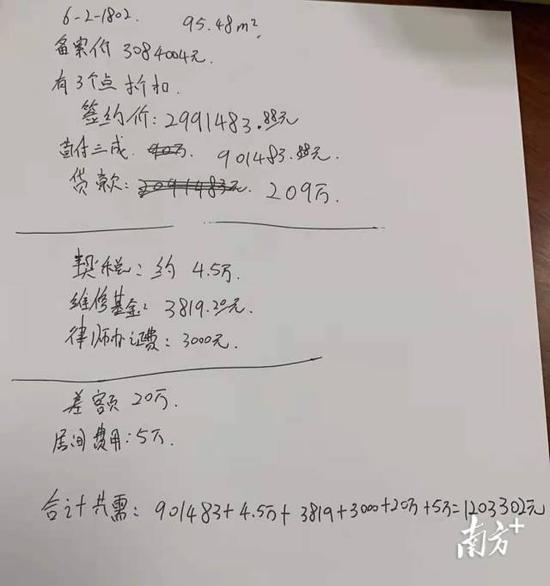 6-2-1802. 95.48m².
备案价 3084004元.
有3个点折扣.
签约价: 2991483.88元
首付三成. 901483.88元.
贷款: 209万.
契税: 约 4.5万.
维修基金: 3819.20元.
律师办证费: 3000元.
差额 20万.
居间费用: 5万.
合计共需: 901483+4.5万+3819+3000+20万+5万=1203302元
南方+